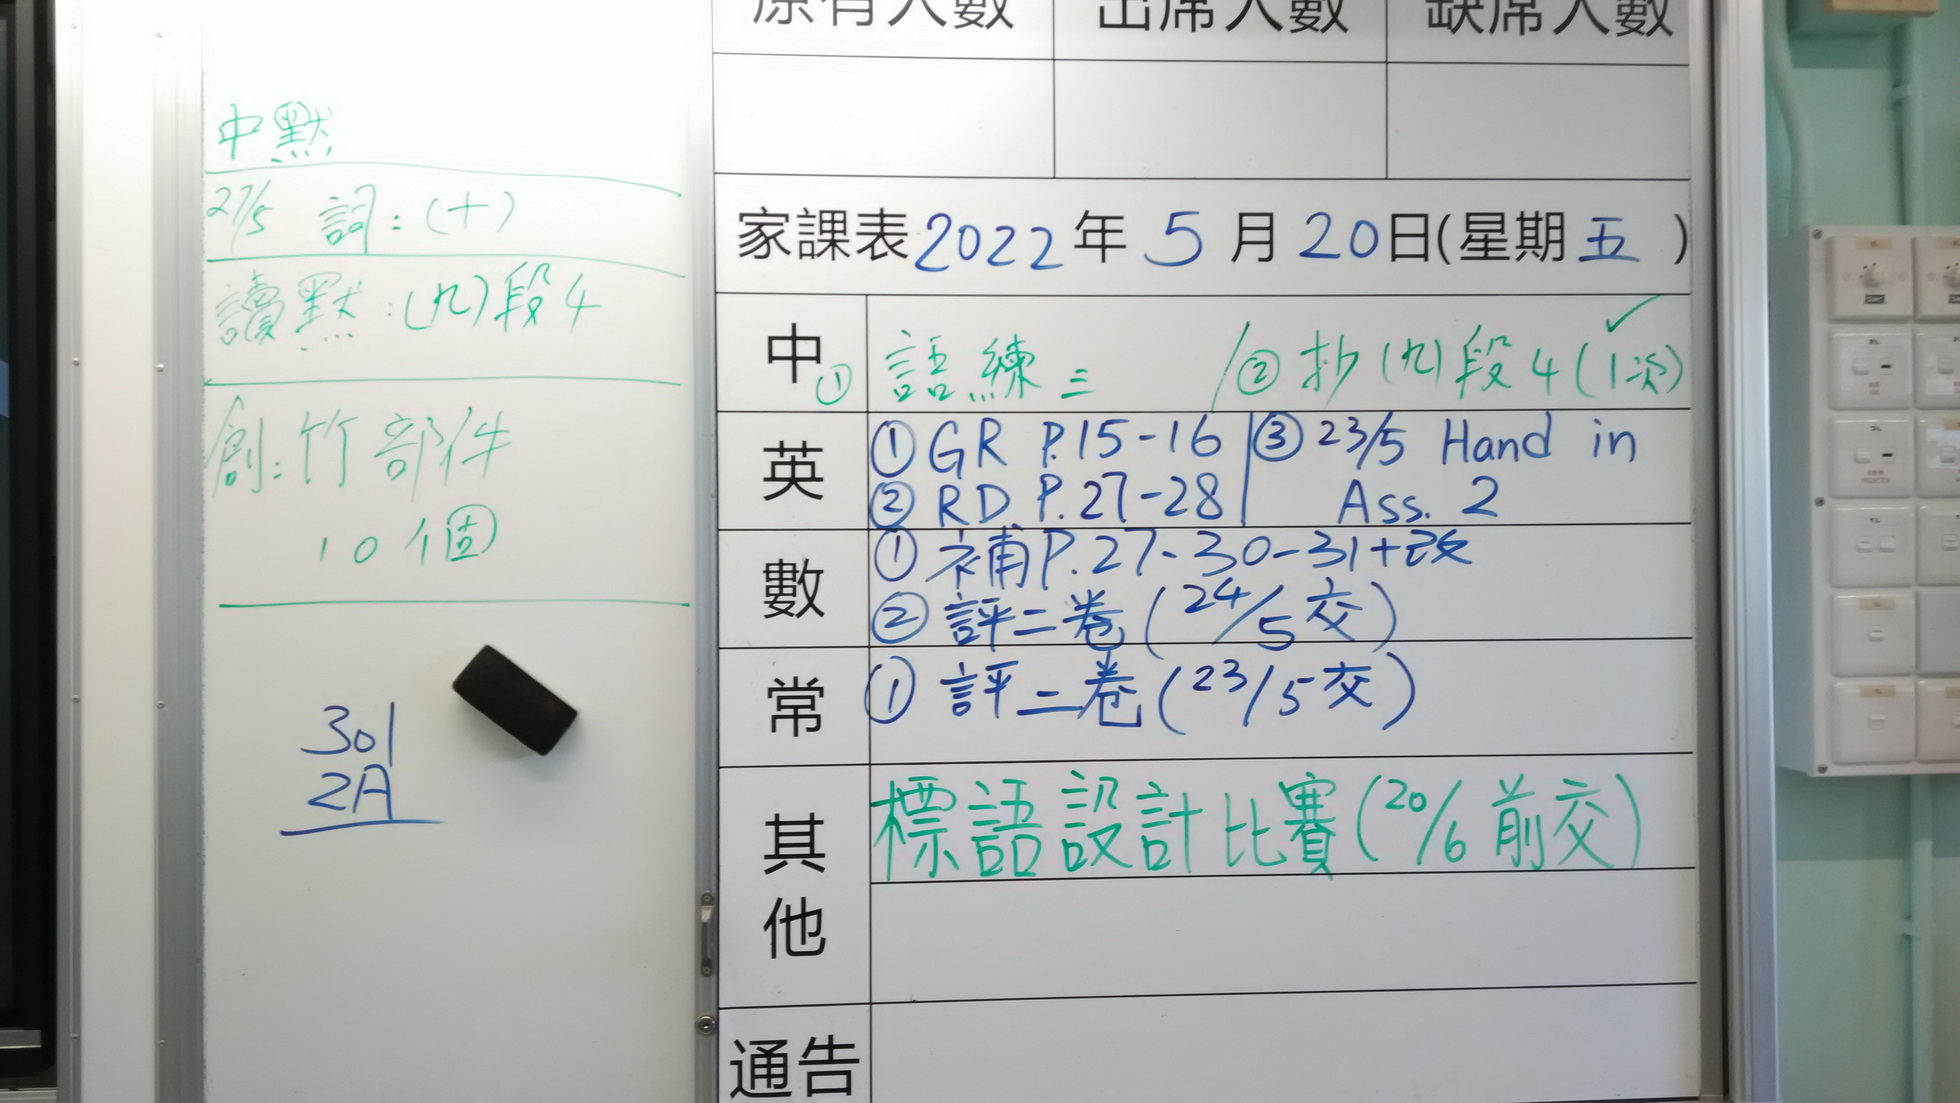 中默
27/5 詞：(十)
讀默：(九)段4
創：竹部件
10個
301
2A
原有人數 出席人數 缺席人數
家課表2022年5月20日(星期五)
中 ① 語練三 / ② 抄(九)段4(1次) ✓
英 ① GR P.15-16 | ③ 23/5 Hand in
② RD P.27-28 | Ass. 2
數 ① 補P.27-30-31+改
② 評二卷(24/5交)
常 ① 評二卷(23/5交)
其他 標語設計比賽(20/6前交)
通告